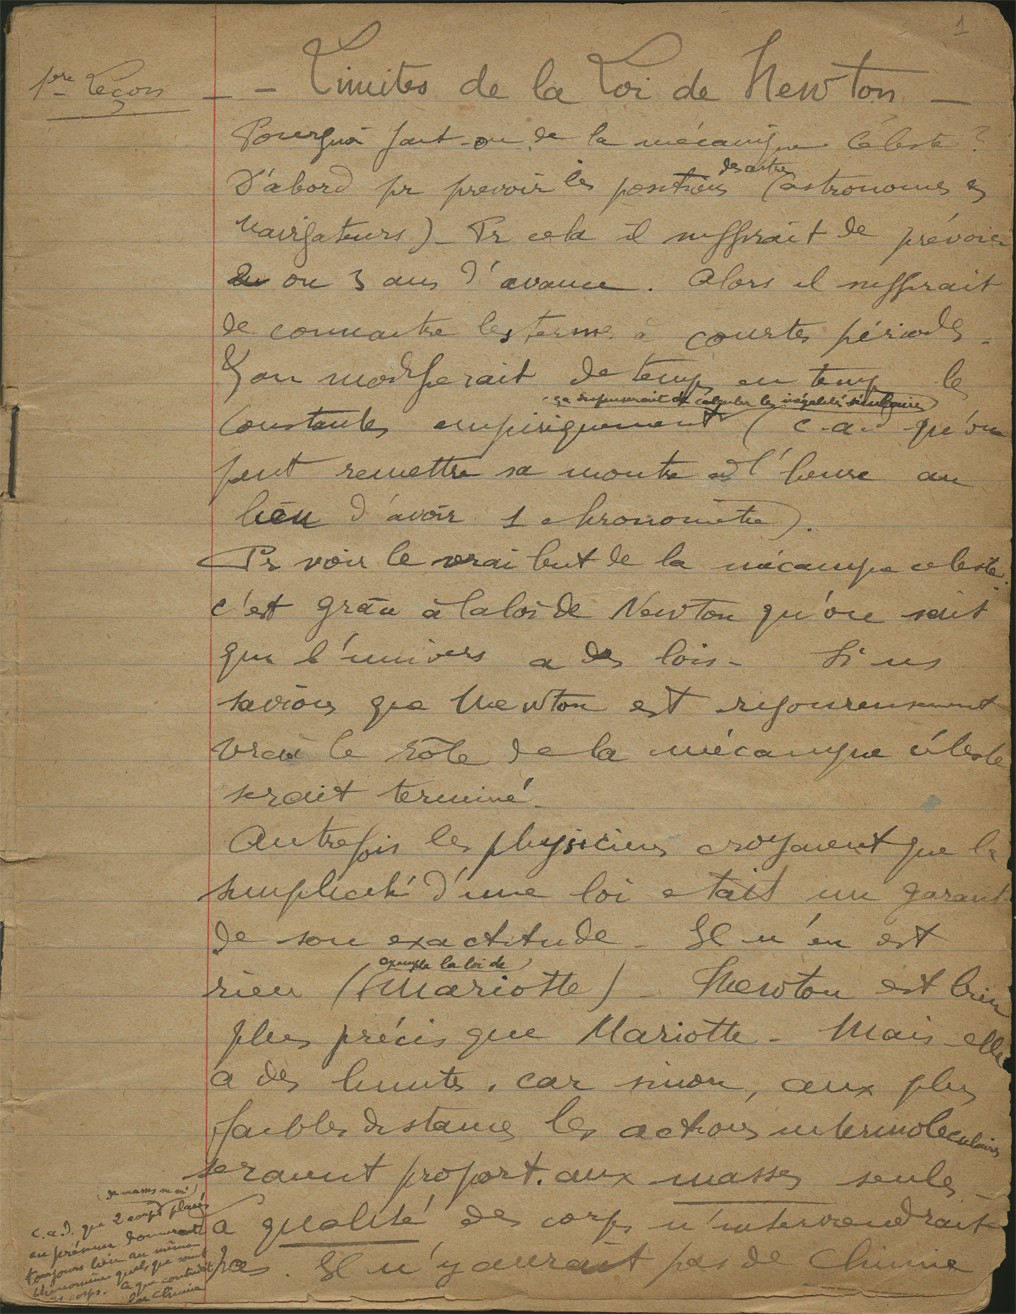 1
1ère Leçon
- - Limites de la Loi de Newton -
Pourquoi fait-on de la mécanique Céleste ?
des astres
D'abord pr prévoir les positions (astronomes &
navigateurs) - Pr cela il suffirait de prévoir
2 ou 3 ans d'avance. Alors il suffirait
de connaitre les termes à courtes périodes.
& on modifierait de temps en temps les
ça dispenserait de calculer les inégalités séculaires
Constantes empiriquement (c.a.d. qu'on
peut remettre sa montre à l'heure au
lieu d'avoir 1 chronomètre).
Pr voir le vrai but de la mécanique céleste.
c'est grâce à la loi de Newton qu'on sait
que l'univers a des lois - Si ns
savions que Newton est rigoureusement
vrai le rôle de la mécanique céleste
serait terminé -
Autrefois les physiciens croyaient que la
simplicité d'une loi etait un garant
de son exactitude - Il n'en est
exemple la loi de
rien (Mariotte) - Newton est bien
plus précis que Mariotte - Mais elle
a des limites, car sinon, aux plus
faibles distances les actions intermoleculaires
seraient proport. aux masses seules -
la qualité des corps n'interviendrait
pas. Il n'y aurait pas de Chimie
(de masses m m')
c.a.d. que 2 corps placés
en présence donneraient
toujours lieu au même
phénomène quels que soient
ces corps. Ce que contredit
la Chimie